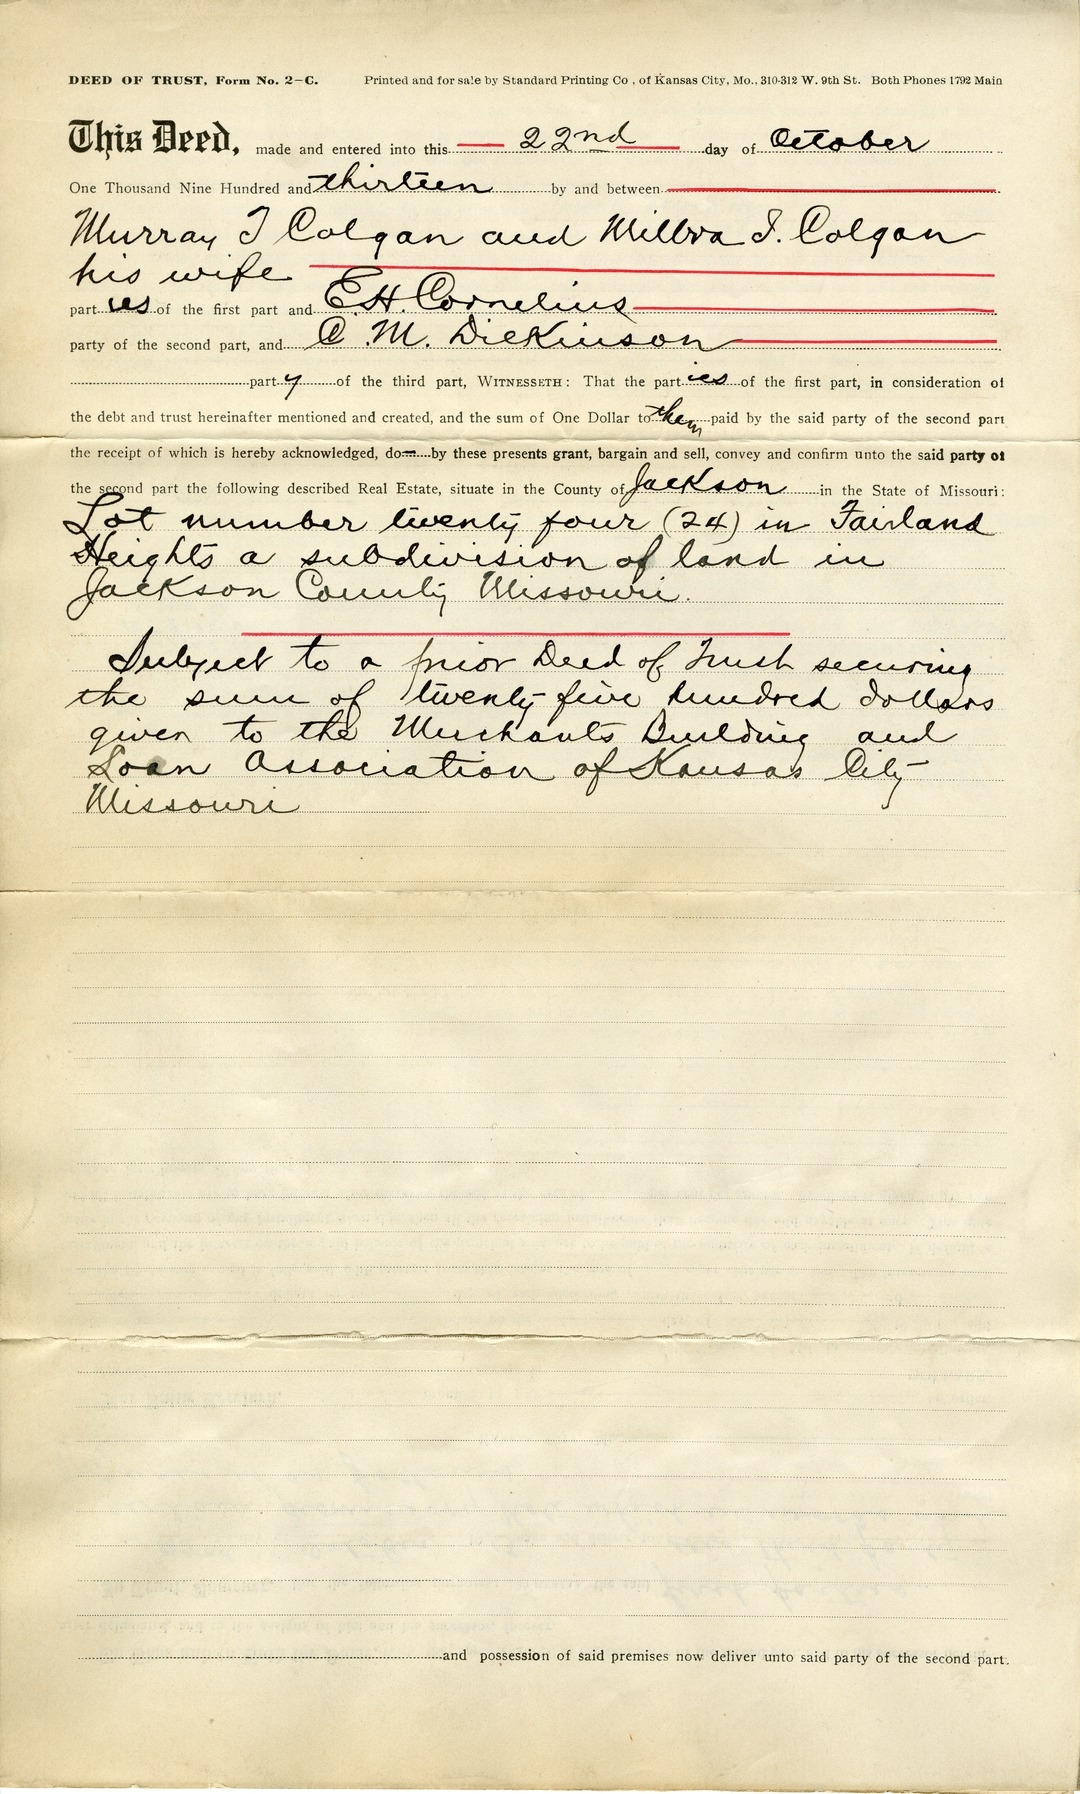 DEED OF TRUST, Form No. 2-C. Printed and for sale by Standard Printing Co, of Kansas City, Mo., 310-312 W. 9th St. Both Phones 1792 Main
This Deed, made and entered into this 22nd day of October
One Thousand Nine Hundred and thirteen by and between
Murray T Colgan and Millva I. Colgan
his wife
part ies of the first part and E.H. Cornelius
party of the second part, and C. M. Dickinson
part y of the third part, WITNESSETH: That the part ies of the first part, in consideration of
the debt and trust hereinafter mentioned and created, and the sum of One Dollar to them paid by the said party of the second part
the receipt of which is hereby acknowledged, do by these presents grant, bargain and sell, convey and confirm unto the said party of
the second part the following described Real Estate, situate in the County of Jackson in the State of Missouri:
Lot number twenty four (24) in Fairland
Heights a subdivision of land in
Jackson County Missouri.
Subject to a prior Deed of Trust securing
the sum of twenty-five hundred dollars
given to the Merchants Building and
Loan Association of Kansas City
Missouri
and possession of said premises now deliver unto said party of the second part.